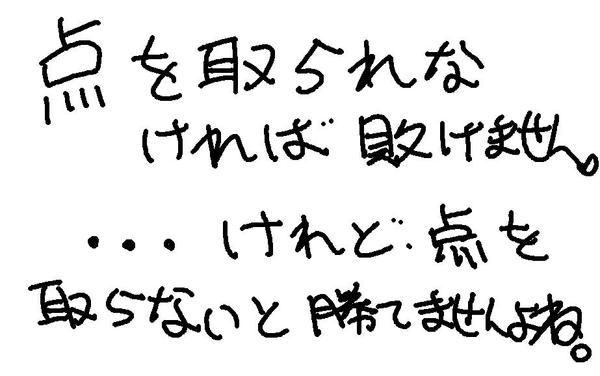 点を取られな
ければ敗けません。
・・・けれど点を
取らないと勝てませんよね。